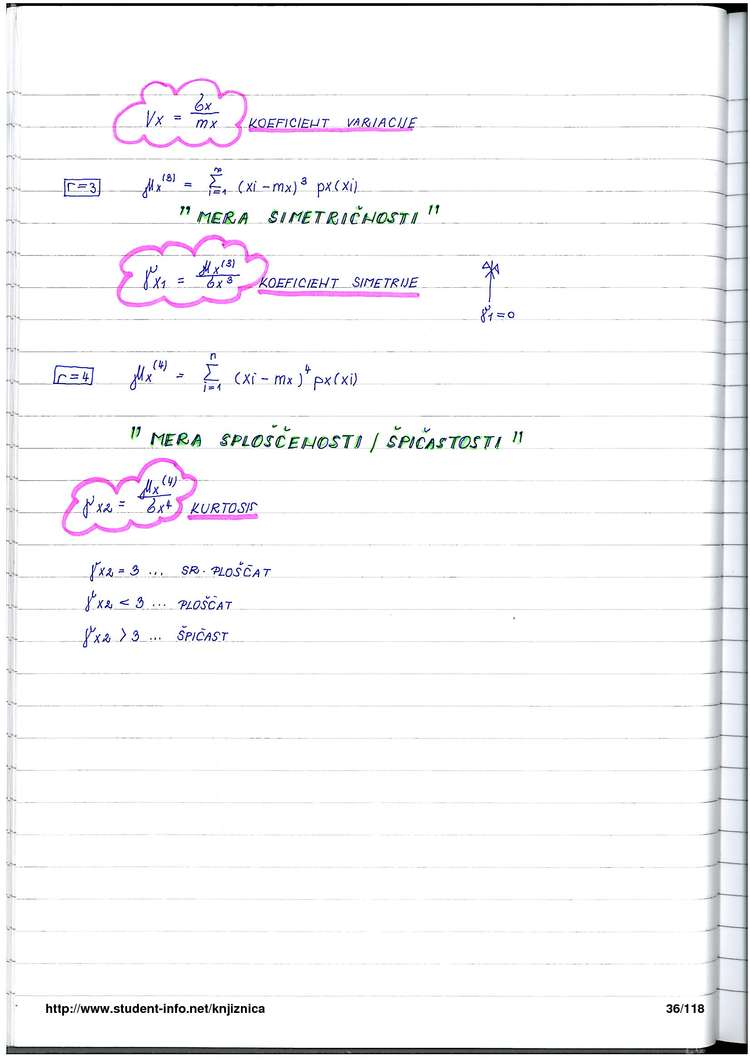 Vx = σx / mx KOEFICIENT VARIACIJE
r=3 μx⁽³⁾ = Σ_{i=1}^{n} (xi - mx)³ px(xi)
" MERA SIMETRIČNOSTI "
γx1 = μx⁽³⁾ / σx³ KOEFICIENT SIMETRIJE
γ1=0
r=4 μx⁽⁴⁾ = Σ_{i=1}^{n} (xi - mx)⁴ px(xi)
" MERA SPLOŠČENOSTI / ŠPIČASTOSTI "
γx2 = μx⁽⁴⁾ / σx⁴ KURTOSIS
γx2 = 3 ... SR. PLOŠČAT
γx2 < 3 ... PLOŠČAT
γx2 > 3 ... ŠPIČAST
http://www.student-info.net/knjiznica 36/118